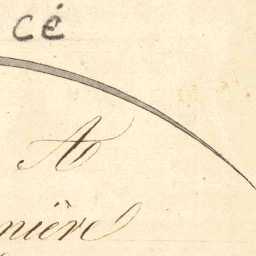 cé
A
nière